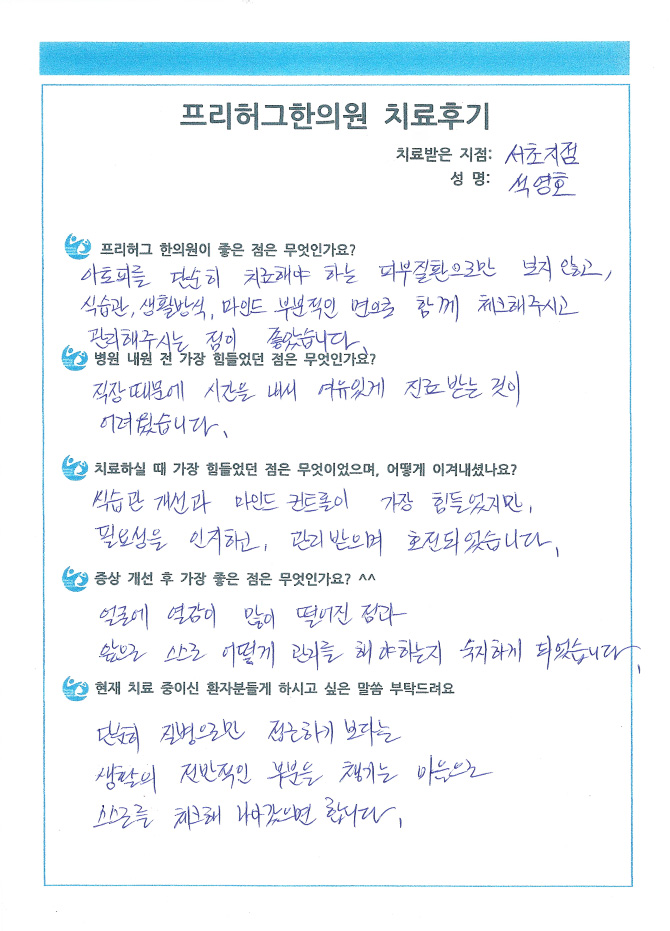 프리허그한의원 치료후기
치료받은 지점: 서초지점
성 명: 석영호
프리허그 한의원이 좋은 점은 무엇인가요?
아토피를 단순히 치료해야 하는 피부질환으로만 보지 않고,
식습관, 생활방식, 마인드 부분적인 면으로 함께 체크해주시고
관리해주시는 점이 좋았습니다.
병원 내원 전 가장 힘들었던 점은 무엇인가요?
직장때문에 시간을 내서 여유있게 진료받는 것이
어려웠습니다.
치료하실 때 가장 힘들었던 점은 무엇이었으며, 어떻게 이겨내셨나요?
식습관 개선과 마인드 컨트롤이 가장 힘들었지만,
필요성을 인지하고, 관리받으며 호전되었습니다.
증상 개선 후 가장 좋은 점은 무엇인가요? ^^
얼굴에 열감이 많이 떨어진 점과
앞으로 스스로 어떻게 관리를 해야하는지 숙지하게 되었습니다.
현재 치료 중이신 환자분들게 하시고 싶은 말씀 부탁드려요
단순히 질병으로만 접근하기 보다는
생활의 전반적인 부분을 챙기는 마음으로
스스로를 체크해 나아갔으면 합니다.